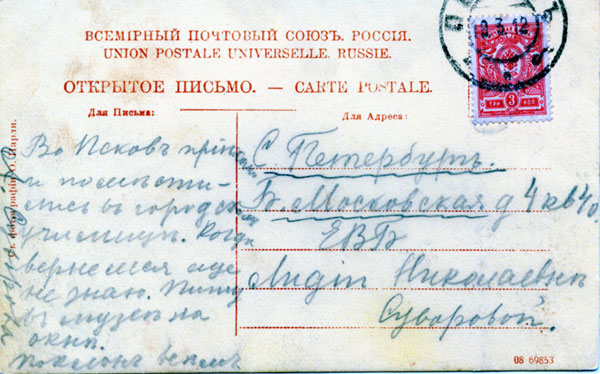 ВСЕМІРНЫЙ ПОЧТОВЫЙ СОЮЗЪ. РОССІЯ.
UNION POSTALE UNIVERSELLE. RUSSIE.
ОТКРЫТОЕ ПИСЬМО. — CARTE POSTALE.
Для Письма:
Для Адреса:
Во Псковъ
и помѣсти-
лись въ городск
училищѣ. Когда
вернемся еще
не знаю. Пишу
въ музеѣ на
окнѣ.
Поклонъ всѣмъ.
С Петербургъ.
Б. Московская д 4 кв 40
ЕВБ
Лидіи Николаевнѣ
Суворовой.
3
ТРИ КОП
08 69853